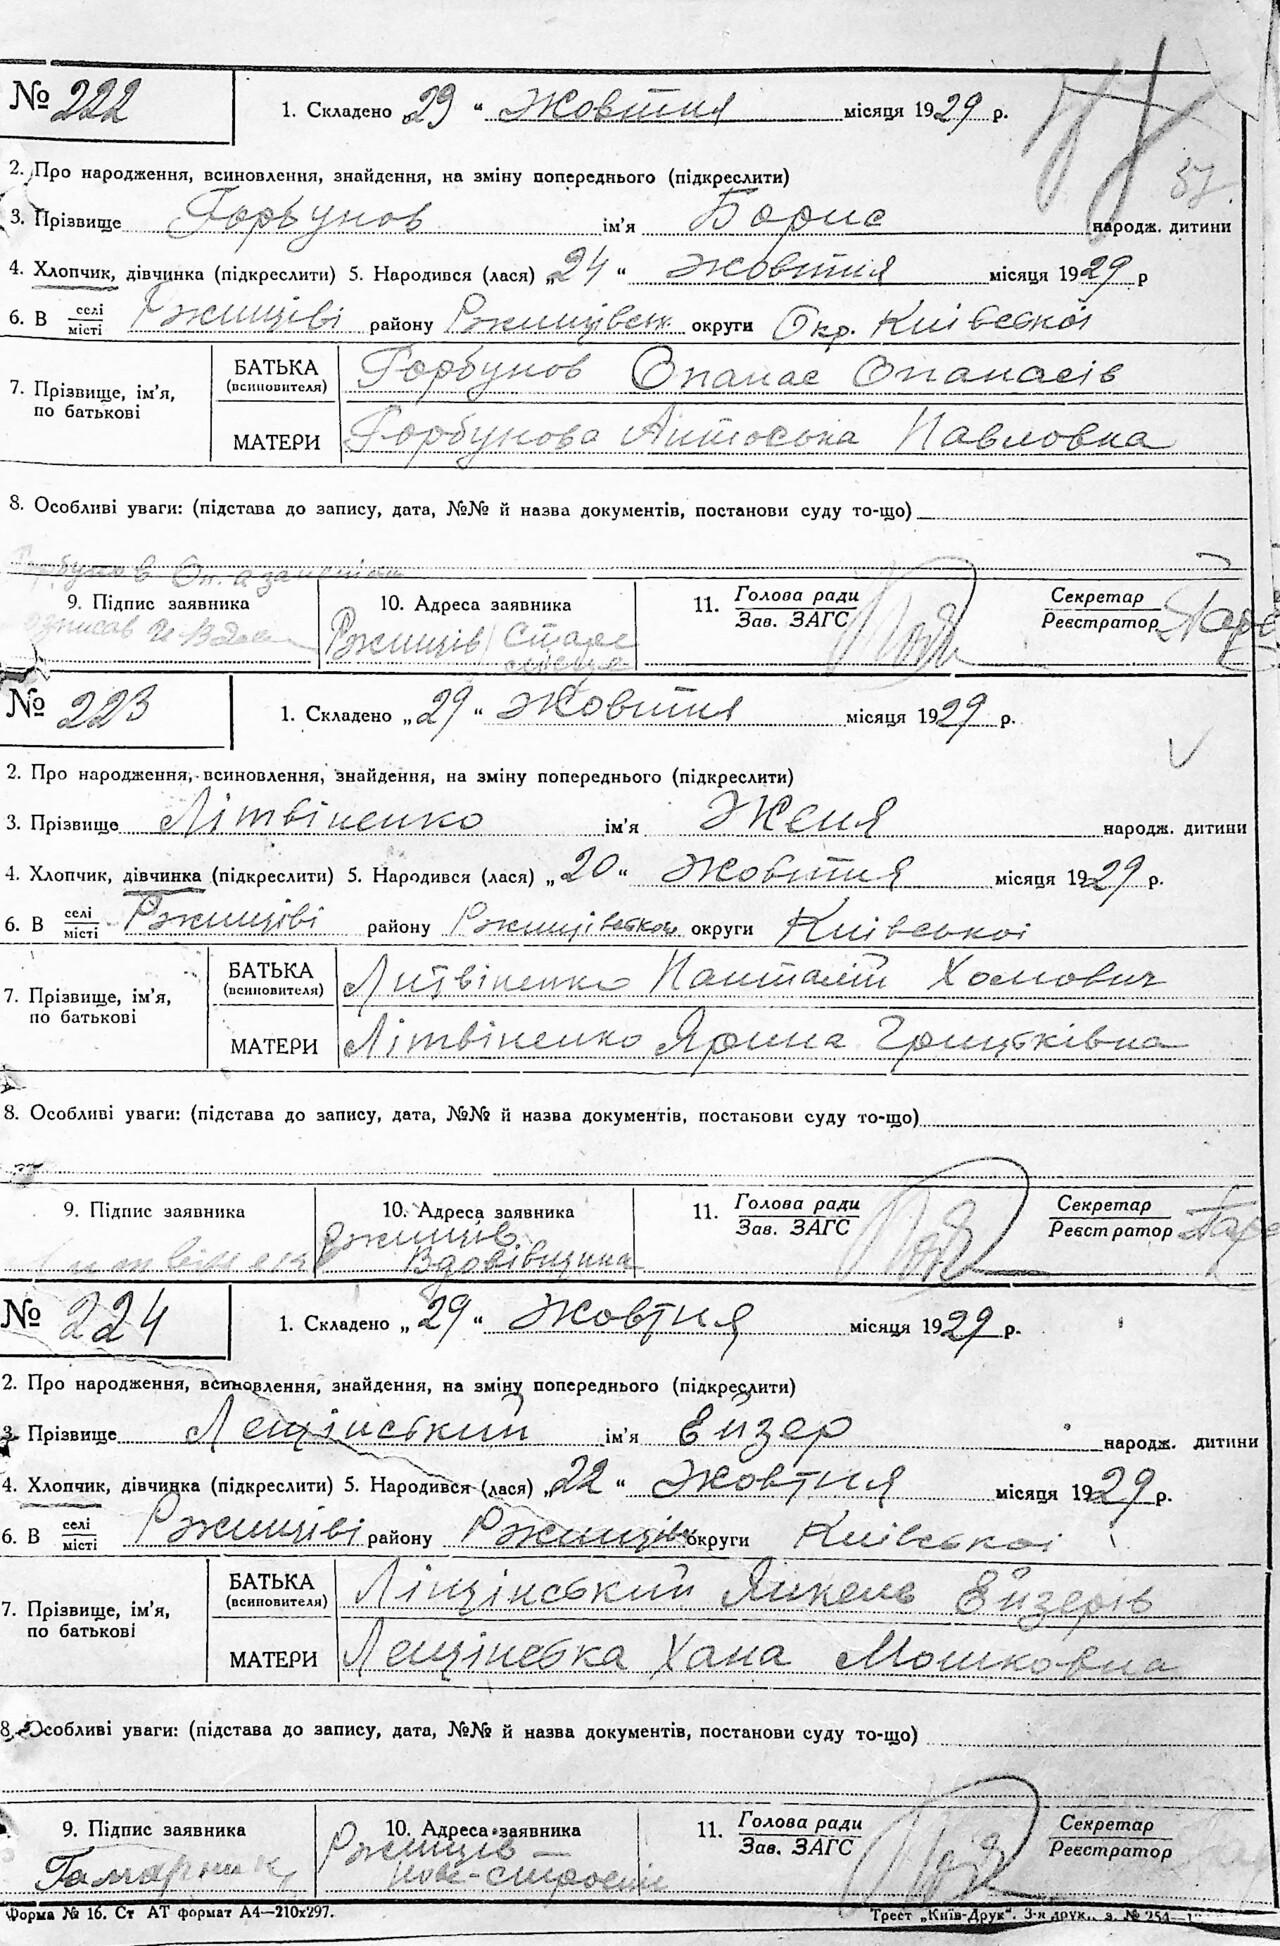 № 222 1. Складено „29" Жовтня місяця 1929 р.
57
2. Про народження, всиновлення, знайдення, на зміну попереднього (підкреслити)
3. Прізвище Горбунов ім'я Борис народж. дитини
4. Хлопчик, дівчинка (підкреслити) 5. Народився (лася) „24" жовтня місяця 1929 р
6. В селі/місті Ржищіві району Ржищівськ округи Окр. Київської
7. Прізвище, ім'я, по батькові
БАТЬКА (всиновителя) Горбунов Опанас Опанасів
МАТЕРИ Горбунова Антоська Павловна
8. Особливі уваги: (підстава до запису, дата, №№ й назва документів, постанови суду то-що)
Горбунов Оп. а за
9. Підпис заявника 10. Адреса заявника 11. Голова ради/Зав. ЗАГС Секретар/Реєстратор
Ржищів Старе
№ 223 1. Складено „29" Жовтня місяця 1929 р.
2. Про народження, всиновлення, знайдення, на зміну попереднього (підкреслити)
3. Прізвище Літвіненко ім'я Женя народж. дитини
4. Хлопчик, дівчинка (підкреслити) 5. Народився (лася) „20" Жовтня місяця 1929 р.
6. В селі/місті Ржищіві району Ржищівськом округи Київської
7. Прізвище, ім'я, по батькові
БАТЬКА (всиновителя) Литвіненко Панталій Хомович
МАТЕРИ Літвіненко Ярина Грицьківна
8. Особливі уваги: (підстава до запису, дата, №№ й назва документів, постанови суду то-що)
9. Підпис заявника 10. Адреса заявника 11. Голова ради/Зав. ЗАГС Секретар/Реєстратор
Ржищів
Вдовівщина
№ 224 1. Складено „29" Жовтня місяця 1929 р.
2. Про народження, всиновлення, знайдення, на зміну попереднього (підкреслити)
3. Прізвище Лещінський ім'я Ейзер народж. дитини
4. Хлопчик, дівчинка (підкреслити) 5. Народився (лася) „22" Жовтня місяця 1929 р.
6. В селі/місті Ржищіві району Ржищів округи Київської
7. Прізвище, ім'я, по батькові
БАТЬКА (всиновителя) Ліщінський Янкель Ейзерів
МАТЕРИ Лещінська Хана Мошковна
8. Особливі уваги: (підстава до запису, дата, №№ й назва документів, постанови суду то-що)
9. Підпис заявника 10. Адреса заявника 11. Голова ради/Зав. ЗАГС Секретар/Реєстратор
Гамарник Ржищів
Форма № 16. Ст АТ формат А4—210х297. Трест „Київ-Друк". 3-я друк., з. № 254—1